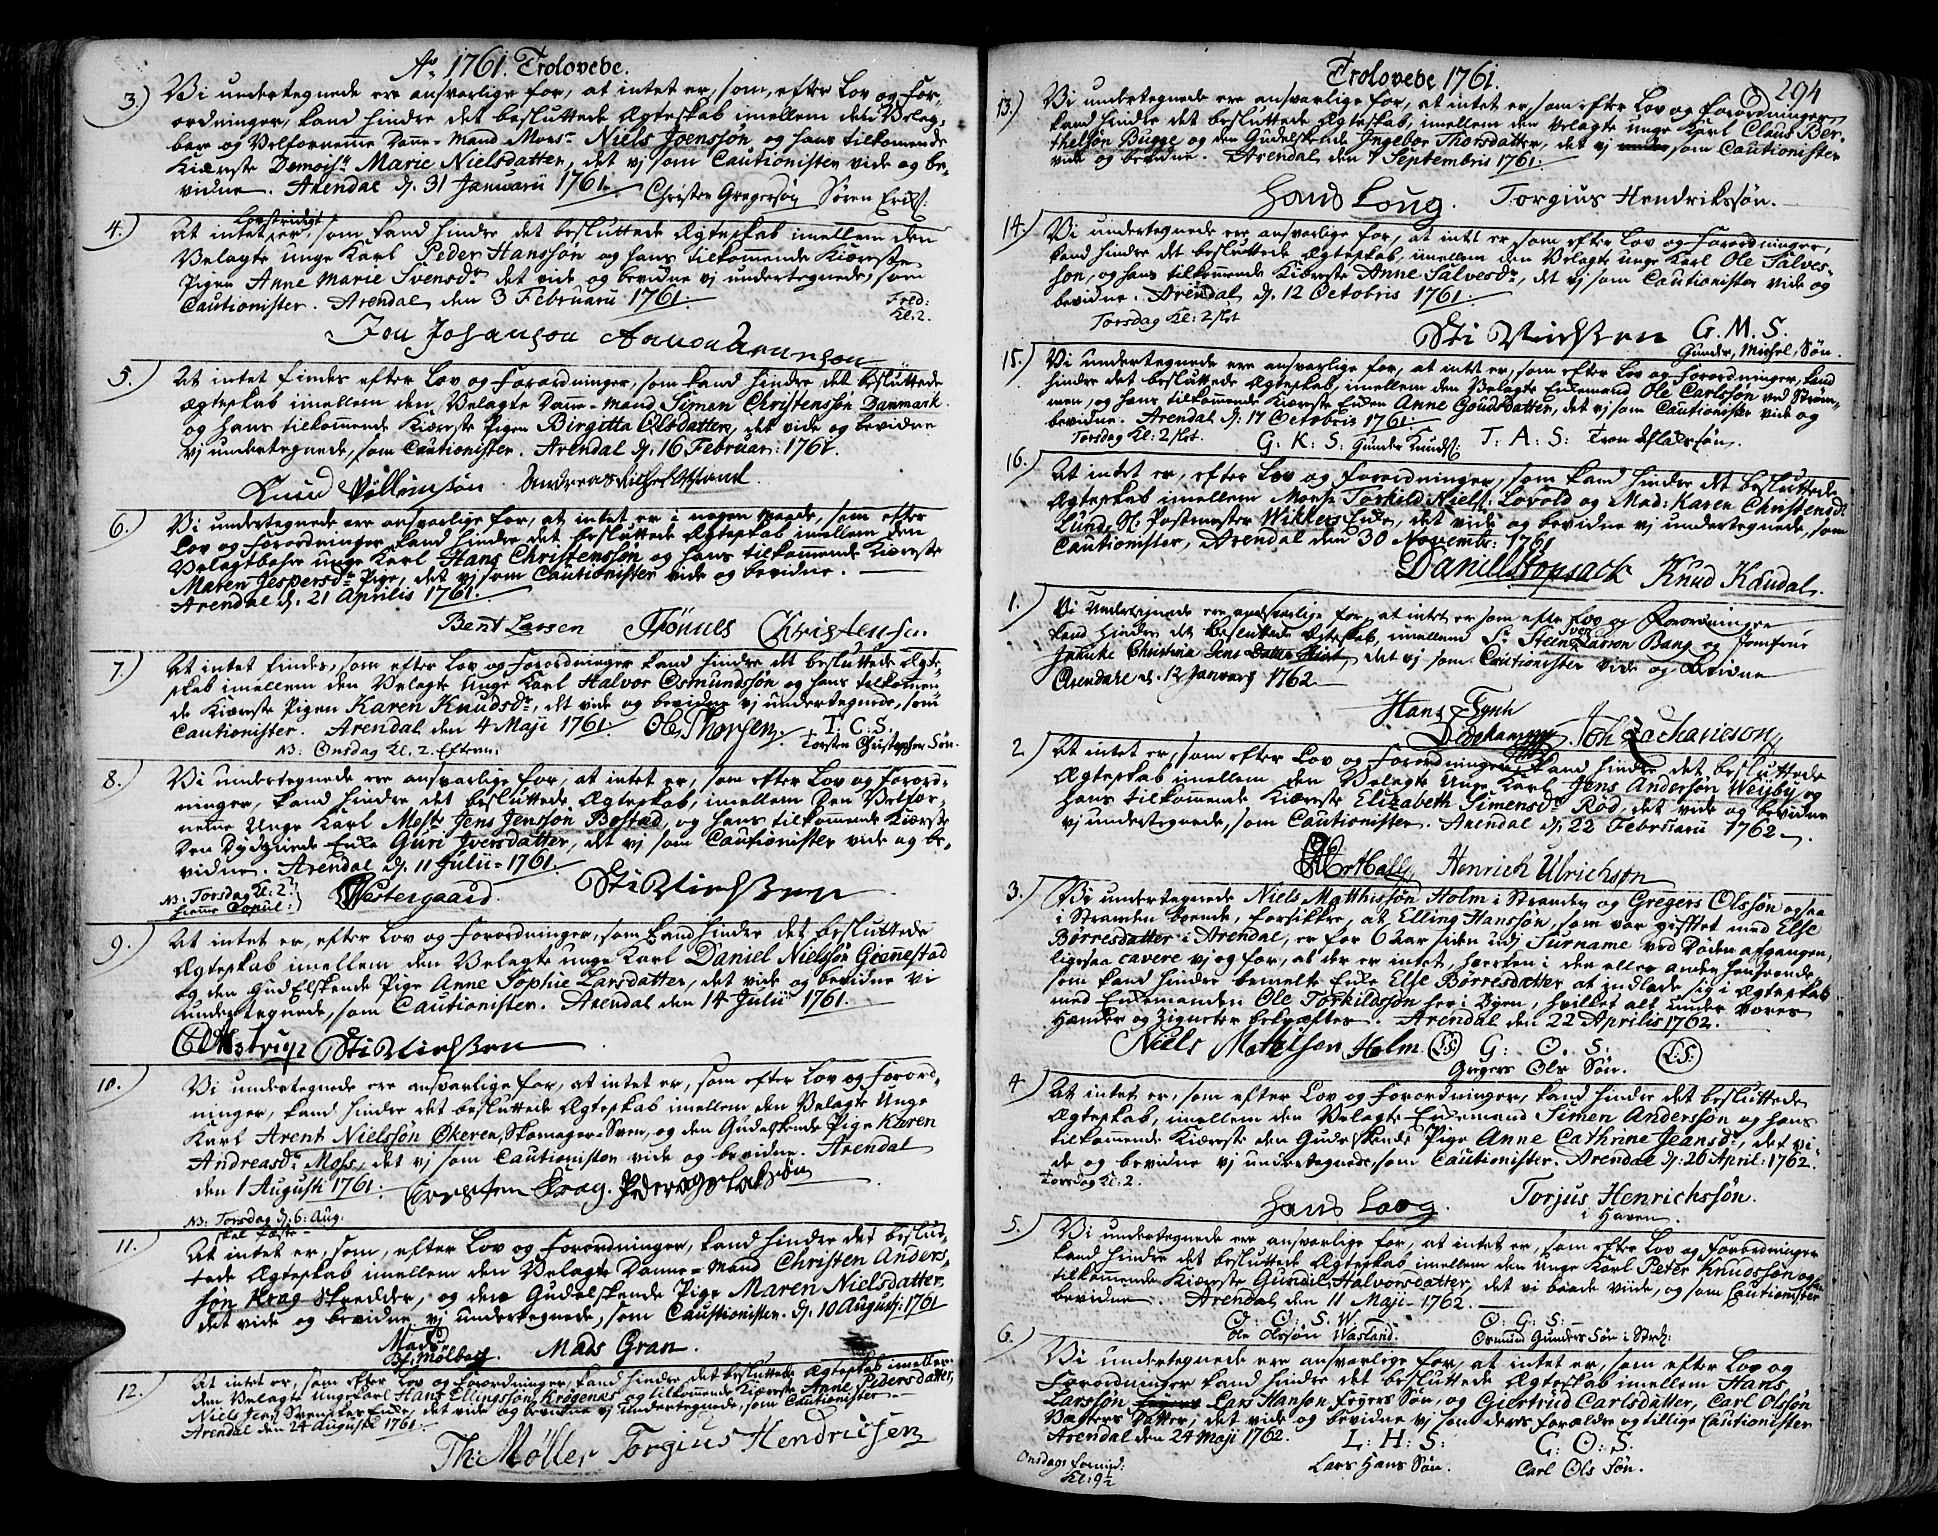 Ao 1761. Trolovede.
3.) Vi undertegnede ere answarlige for, at intet er, som, efter Lov og For-
ordninger, kand hindre det besluttede Ægteskab imellem den Velag-
bar og Velfornemme Danne-Mand Monsr. Niels Joenssøn og hans tilkommende
Kiærste Demoisle Marie Nielsdatter, det vj som Cautionister vide og be-
vidne. Arendal d. 31 Januarii 1761. Christen Gregersøn Søren Erichs:
4.) At intet Lovstridigt er, som kand hindre det besluttede Ægteskab imellem den
Velagte unge Karl Peder Hanssøn og hans tilkommende Kiærste
Pigen Anne Marie Svensdr det vide og bevidne vj undertegnede, som
Cautionister. Arendal den 3 Februarii 1761. Fred:
Kl: 2.
5.) At intet findes efter Lov og Forordninger, som kand hindre det besluttede
Ægteskab imellem den Velagte Danne-Mand Simon Christenssøn Danmark
og hans tilkommende Kiærste Pigen Birgitta Olsdatter, det vide og bevidne
vj undertegnede, som Cautionister. Arendal d. 16 Februar: 1761.
6.) Vi undertegnede ere answarlige for, at intet er i nogen Maade, som efter
Lov og Forordninger kand hindre det besluttede Ægteskab imellem den
Velagtbahre unge Karl Hans Christenssøn og hans tilkommende Kiærste
Maren Jespersdr Pige, det vj som Cautionister vide og bevidne.
Arendal d. 21 Aprilis 1761.
Bent Larsen Tønnes Christensen.
7.) At intet findes, som efter Lov og Forordninger kand hindre det besluttede Ægte-
skab imellem den Velagte unge Karl Halvor Osmundssøn og hans tilkommen-
de Kiærste Pigen Karen Knudsdr, det vide og bevidne vj undertegnede, som
Cautionister. Arendal den 4 Maji 1761. Ole Thorsen. T. C. S.
NB: Onsdag Kl. 2. Efterm: Torsten Christopher Søn.
8.) Vi undertegnede ere answarlige for, at intet er, som efter Lov og Forord-
ninger, kand hindre det besluttede Ægteskab, imellem den Velfor-
nemme Unge Karl Mestr Jens Jenssøn Bøstad, og hans tilkommende Kiærste
den Dydziirede Enke Guri Jversdatter, det vj som Cautionister vide og be-
vidne. Arendal d. 11 Julii 1761.
NB: Torsdag Kl. 2 Westergaard
hiemme Copul:
9.) At intet er, efter Lov og Forordninger, som kand hindre det besluttede
Ægteskab imellem den Velagte unge Karl Daniel Nielssøn Grønnestad
og den GudElskende Pige Anne Sophie Larsdatter, det vide og bevidne vi
undertegnede, som Cautionister. Arendal den 14 Julii 1761.
10.) Vi undertegnede ere answarlige for, at intet er, som efter Lov og Forord-
ninger, kand hindre det besluttede Ægteskab imellem den Velagte Unge
Karl Arent Nielssøn Økeren, Skomager-Sven, og den Gudelskende Pige Karen
Andreasdr Moss, det vj som Cautionister vide og bevidne. Arendal
den 1 Augusti 1761.
NB: Torsdag d. 6: Aug.
skal Fæste
11.) At intet er, som, efter Lov og Forordninger, kand hindre det beslut-
tede Ægteskab imellem den Velagte Danne-Mand Christen Anders-
søn Krag Skredder, og den Gudelskende Pige Maren Nielsdatter
det vide og bevidne vj undertegnede, som Cautionister. d. 10 Augustj: 1761
Mads Gran.
12.) At intet er, som efter Lov og Forordninger, kand hindre det besluttede Ægteskab imellem
den Velagte Unge Karl Hans Ellingssøn Krøgenes og tilkommende Kiærste Anne Pedersdatter,
Niels Jens Svenskes Enke, det vide og bevidne vj undertegnede, som Cautionister
Arendal den 24 Augusti 1761.
Th: Møller Torgius Hendrichsen
Trolovede 1761. 294
13.) Vi undertegnede ere answarlige for, at intet er, som efter Lov og Forordninger
kand hindre det besluttede Ægteskab, imellem den Velagte unge Karl Claus Ber-
thelsøn Bugge og den Gudelskende Ingebor Thorsdatter, det vj som Cautionister
vide og bevidne. Arendal den 7 Septembris 1761.
Hans Loug. Torgius Hendrikssøn.
14.) Vi undertegnede ere answarlige for, at intet er, som efter Lov og Forordninger,
kand hindre det besluttede Ægteskab, imellem den Velagte unge Karl Ole Salves-
søn, og hans tilkommende Kiæreste Anne Salvesdr, det vj som Cautionister vide og
bevidne. Arendal d. 12 Octobris 1761.
Torsdag Kl: 2 Slet
G. M. S.
Gunder, Michel, Søn.
15.) Vi undertegnede ere answarlige for, at intet er, som efter Lov og Forordninger, kand
hindre det besluttede Ægteskab, imellem den Velagte Enkemand Ole Carlssøn ved Strøm-
men, og hans tilkommende Kiærste Enken Anne Goudsdatter, det vj som Cautionister vide og
bevidne. Arendal d. 17 Octobris 1761.
Torsdag Kl: 2 Slet. G. K. S: Gunder Knuds: T: A: S:
16.) At intet er, efter Lov og Forordninger, som kand hindre det besluttede
Ægteskab imellem Monsr Torkild Niels: Lovold og Mad: Karen Christensdr
Lund, Sl. Postmester Wikkers Enke, det vide og bevidne vj undertegnede, som
Cautionister, Arendal den 30 Novembr: 1761
Daniell Stopsack Knud Kaudal.
1.) Vi Undertegnede ere answarlige for, at intet er som efter Lov og Forordninger
kand hindre det besluttede Ægteskab imellem Sr Svend Larson Bang og Jomfrue
Christina Jens Datter det vj som Cautionister vide og bevidne
Arendahl d. 12 Januarij 1762
Hans Fynh
2.) At intet er, som efter Lov og Forordninger, kand hindre det besluttede
Ægteskab imellem den Velagte Unge Karl Jens Anderssøn Weyby og
hans tilkommende Kiærste Elizabeth Simensdr Rød, det vide og bevidne
vj undertegnede, som Cautionister. Arendal d. 22 Februarii 1762.
Henrich Ulrichson
3.) Vi undertegnede Niels Matthissøn Holm i Stranden og Gregers Olssøn ogsaa
i Stranden boende, forsikkre, at Elling Hanssøn, som var gifftet med Else
Børresdatter i Arendal, er for 6 Aar siden udj Surname ved Døden afgangen,
ligesaa cavere vj og for, at der er intet, hverken i den eller anden henseende,
som kand hindre bemelte Enke Else Børresdatter at indlade sig i Ægteskab
med Enkemanden Ole Torkildssøn her i Byen, hvilket alt under vores
Hænder og Zigneter bekræftes. Arendal den 22 Aprilis 1762.
Niels Mathisøn Holm (L.S.) G: O: S. (L.S.)
Gregers Ols Søn.
4.) At intet er, som efter Lov og Forordninger, kand hindre det besluttede
Ægteskab, imellem den Velagte Enkemand Simen Anderssøn og hans
tilkommende Kiærste den Gudelskende Pige Anne Cathrine Jeansdr, det vi-
de og bevidne vj undertegnede, som Cautionister. Arendal d. 26 April: 1762.
Torsdag Kl: 2.
Hans Loug. Torjus Henrichssøn.
i Haven
5.) Vi undertegnede ere answarlige for, at intet er, som efter Lov og Forordninger
kand hindre det besluttede Ægteskab imellem den Unge Karl Peter Knudssøn og hans
tilkommende Kiærste Gunnil Halvorsdatter, det vi baade viide, og som Cautionister
bevidne. Arendal den 11 Maji 1762.
O: O: S. W. O: G: S:
Ole Olssøn Wasland. Osmund Gunders Søn i Strck:
6.) Vi undertegnede ere answarlige for, at intet er, som efter Lov og
Forordninger kand hindre det besluttede Ægteskab imellem Hans
Larssøn Lars Hanson Søn, og Giertrud Carlsdatter, Carl Olssøn
Datter, det vide og bevidne vj som deres Forældre og tillige Cautionister
Arendal den 24 Maji 1762. L: H: S: G: O: S.
Onsdags Formid: Lars Hans Søn. Carl Ols Søn.
Kl: 9½